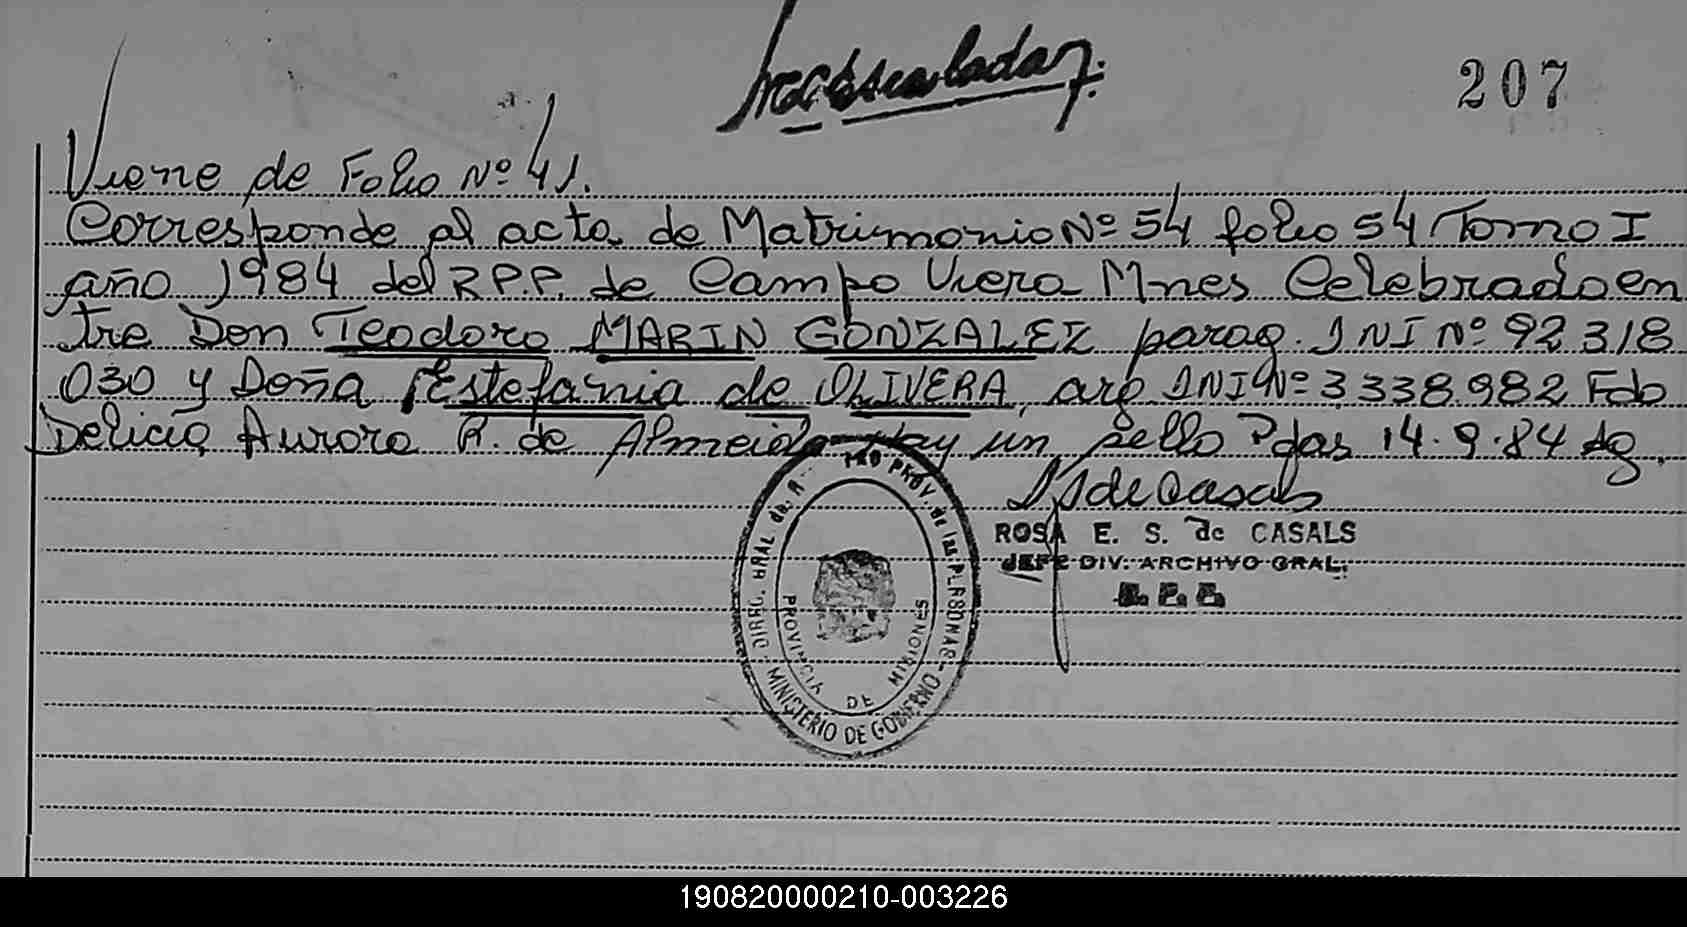 207
Viene de Folio Nº 41.
Corresponde al acta de Matrimonio Nº 54 folio 54 Tomo I
año 1984 del R.P.P. de Campo Viera Mnes Celebrado en
tre Don Teodoro MARIN GONZALEZ parag. DNI Nº 92 318
030 y Doña Estefania de OLIVERA, arg DNI Nº 3.338.982 Fdo
Delicia Aurora R. de Almeida Hay un sello Pdas 14.9.84 Ag.
S de Casals
ROSA E. S. de CASALS
JEFE DIV. ARCHIVO GRAL.
R. P. P.
DIREC. GRAL de. R PROV. de las PERSONAS
PROVINCIA DE MISIONES
MINISTERIO DE GOBIERNO
190820000210-003226